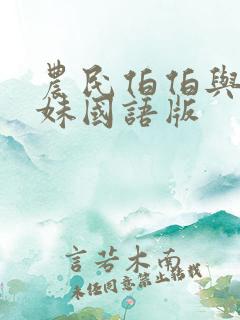 農民伯伯與
妹國語版
言若木南
未经同意禁止转载